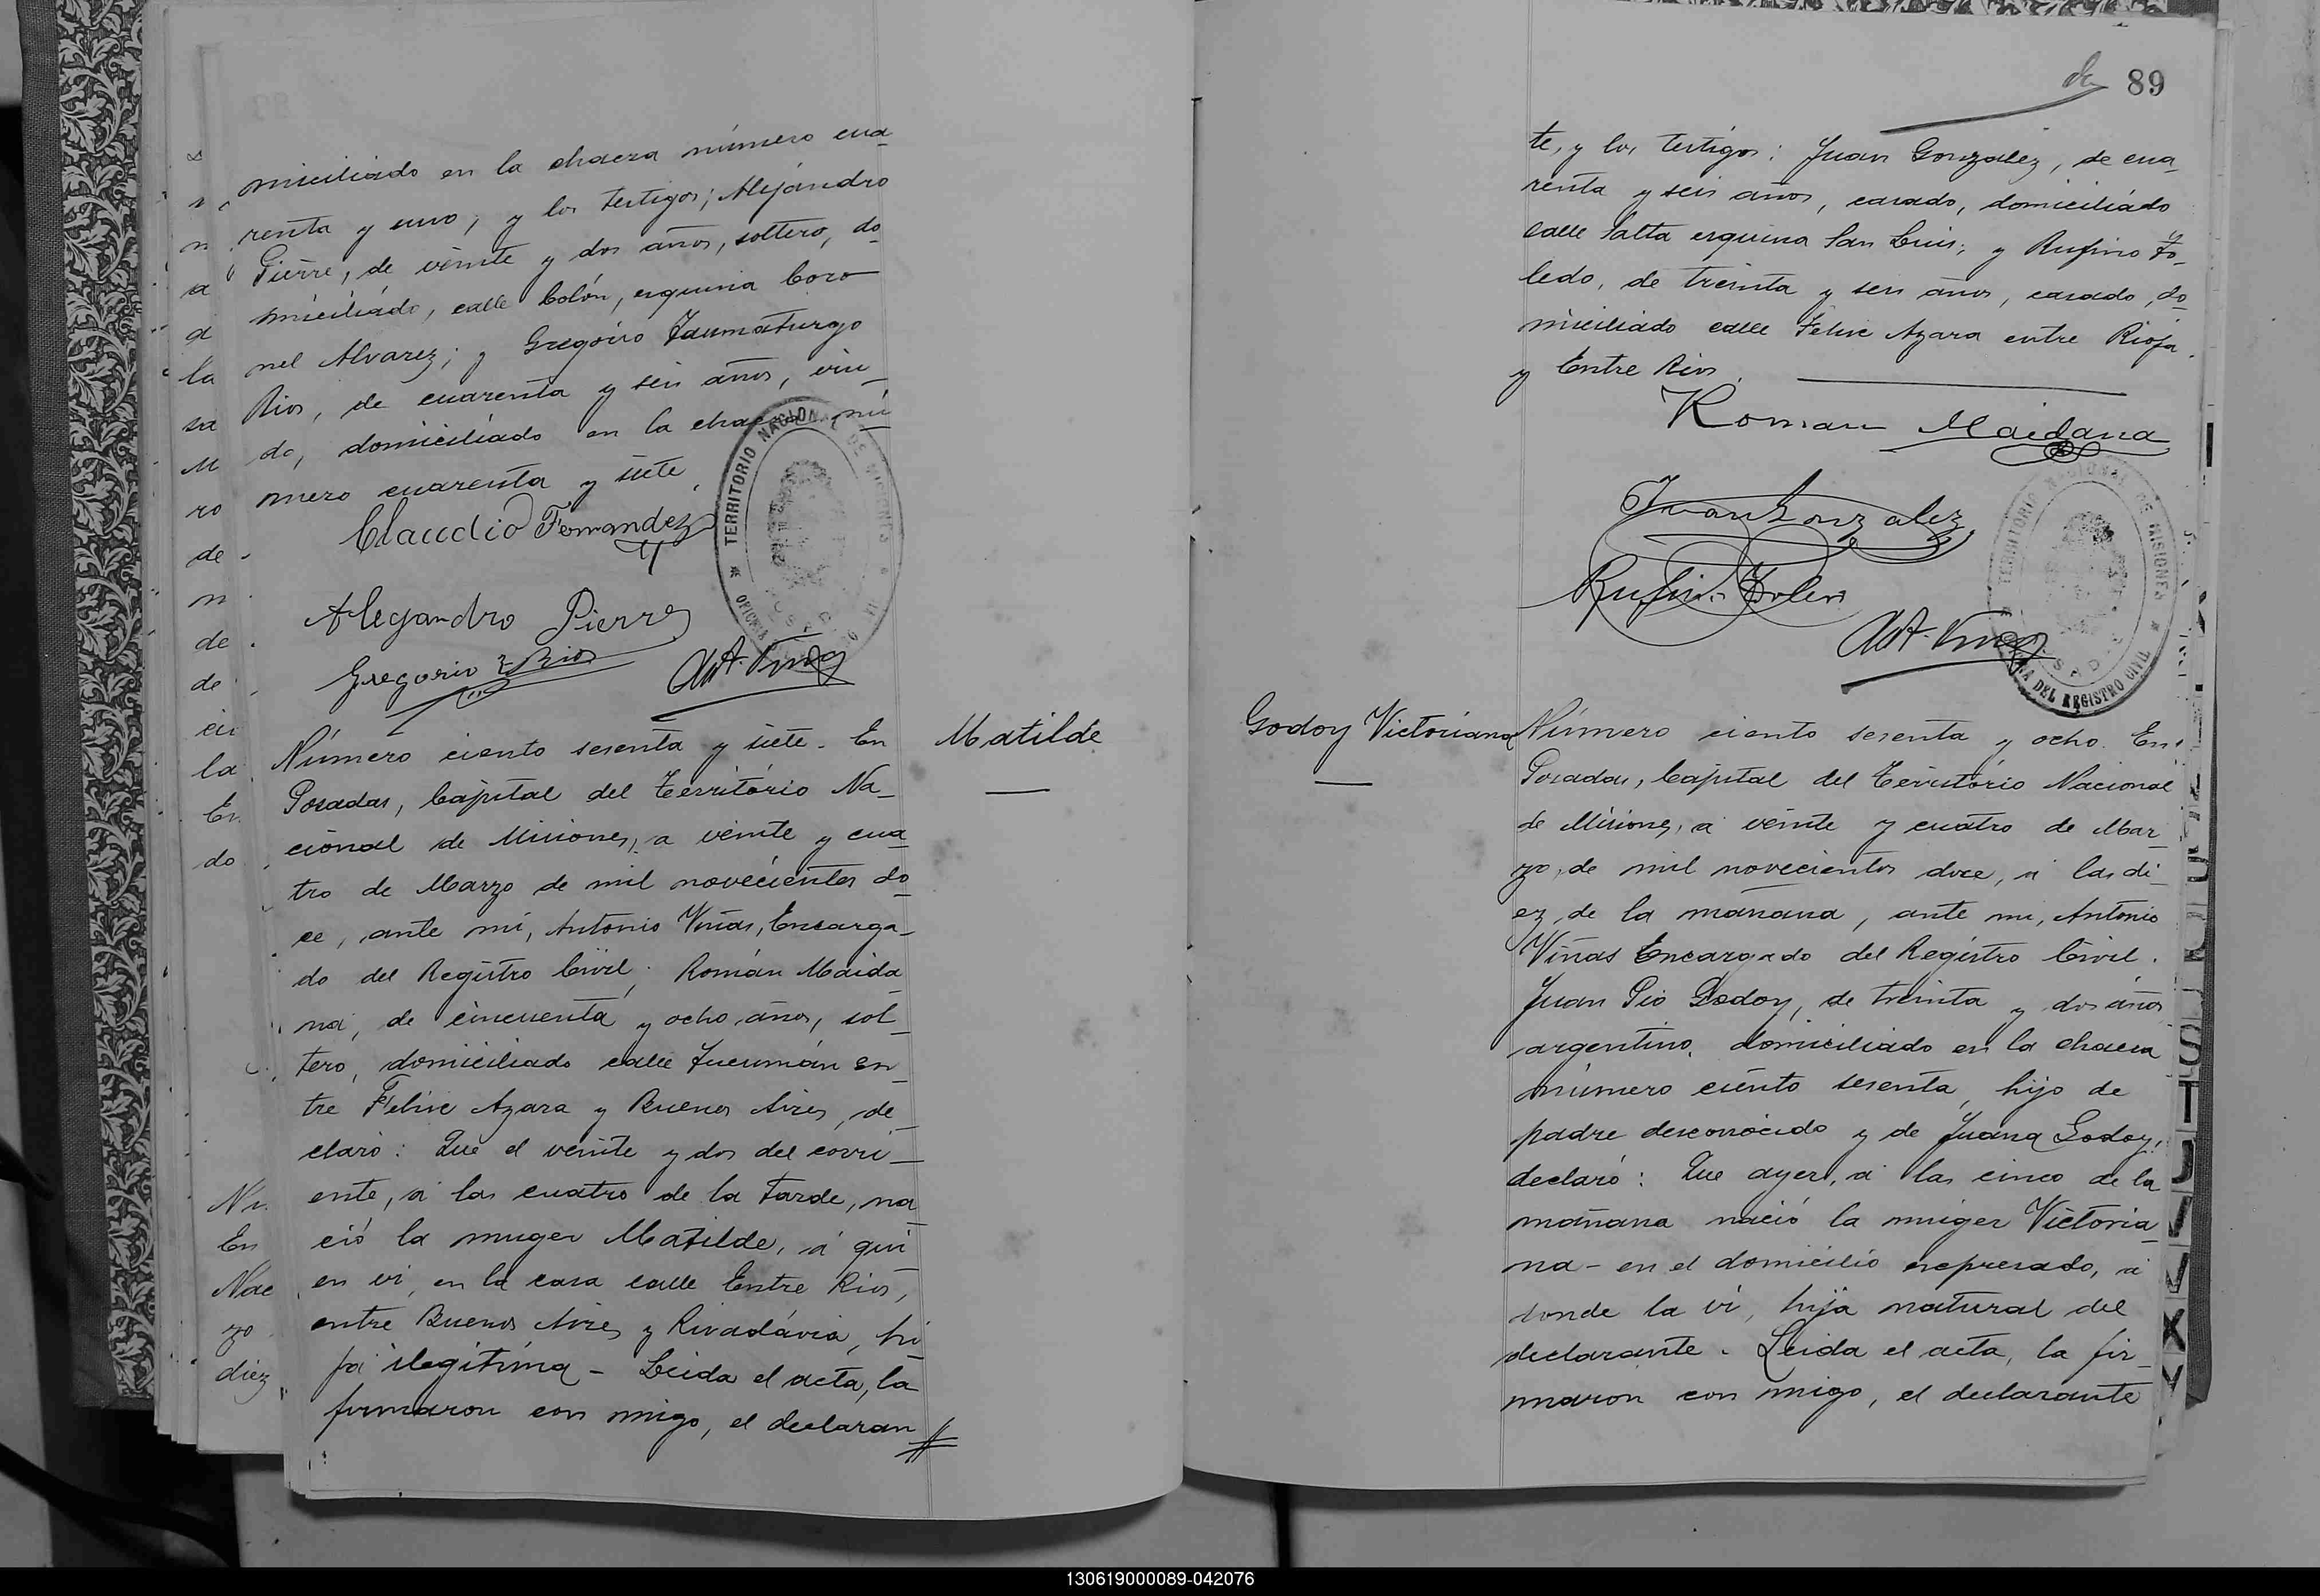 miciliado en la chacra número cua
renta y uno; y los testigos; Alejandro
Pierre, de veinte y dos años, soltero, do
miciliado, calle Colón, esquina Coro
nel Alvarez; y Gregorio Taumaturgo
Rios, de cuarenta y seis años, viu
do, domiciliado en la chacra nú
mero cuarenta y siete.
Claudio Fernandez
Alegandro Pierre
Gregorio T Rios
Ant. Viñas
TERRITORIO NACIONAL DE MISIONES
Matilde
Número ciento sesenta y siete. En
Posadas, Capital del Territorio Na_
cional de Misiones, a veinte y cua
tro de Marzo de mil novecientos do
ce, ante mi, Antonio Viñas, Encarga_
do del Registro Civil; Román Maida
na, de cincuenta y ocho años, sol_
tero, domiciliado calle Tucumán en_
tre Felix Azara y Buenos Aires, de_
claró: Que el veinte y dos del corri_
ente, á las cuatro de la tarde, na
ció la muger Matilde, á qui
en vi, en la casa calle Entre Rios,
entre Buenos Aires y Rivadavia, hi
ja ilegitima - Leida el acta, la
firmaron con migo, el declaran
89
te, y los testigos: Juan González, de cua_
renta y seis años, casado, domiciliado
calle Salta esquina San Luis; y Rufino To_
ledo, de treinta y seis años, casado, do
miciliado calle Felix Azara entre Rioja
y Entre Rios.
Roman Maidana
Juan Gonzalez
Rufino Toledo
Ant. Viñas
TERRITORIO NACIONAL DE MISIONES
OFICINA DEL REGISTRO CIVIL
POSADAS
Godoy Victoriana
Número ciento sesenta y ocho. En
Posadas, Capital del Territorio Nacional
de Misiones, á veinte y cuatro de Mar_
zo, de mil novecientos doce, á las di_
ez de la mañana, ante mi, Antonio
Viñas Encargado del Registro Civil.
Juan Pio Godoy, de treinta y dos años
argentino, domiciliado en la chacra
número ciento sesenta, hijo de
padre desconocido y de Juana Godoy,
declaró: Que ayer, á las cinco de la
mañana nació la muger Victoria_
na - en el domicilio expresado, á
donde la vi, hija natural del
declarante. Leida el acta, la fir_
maron con migo, el declarante
130619000089-042076